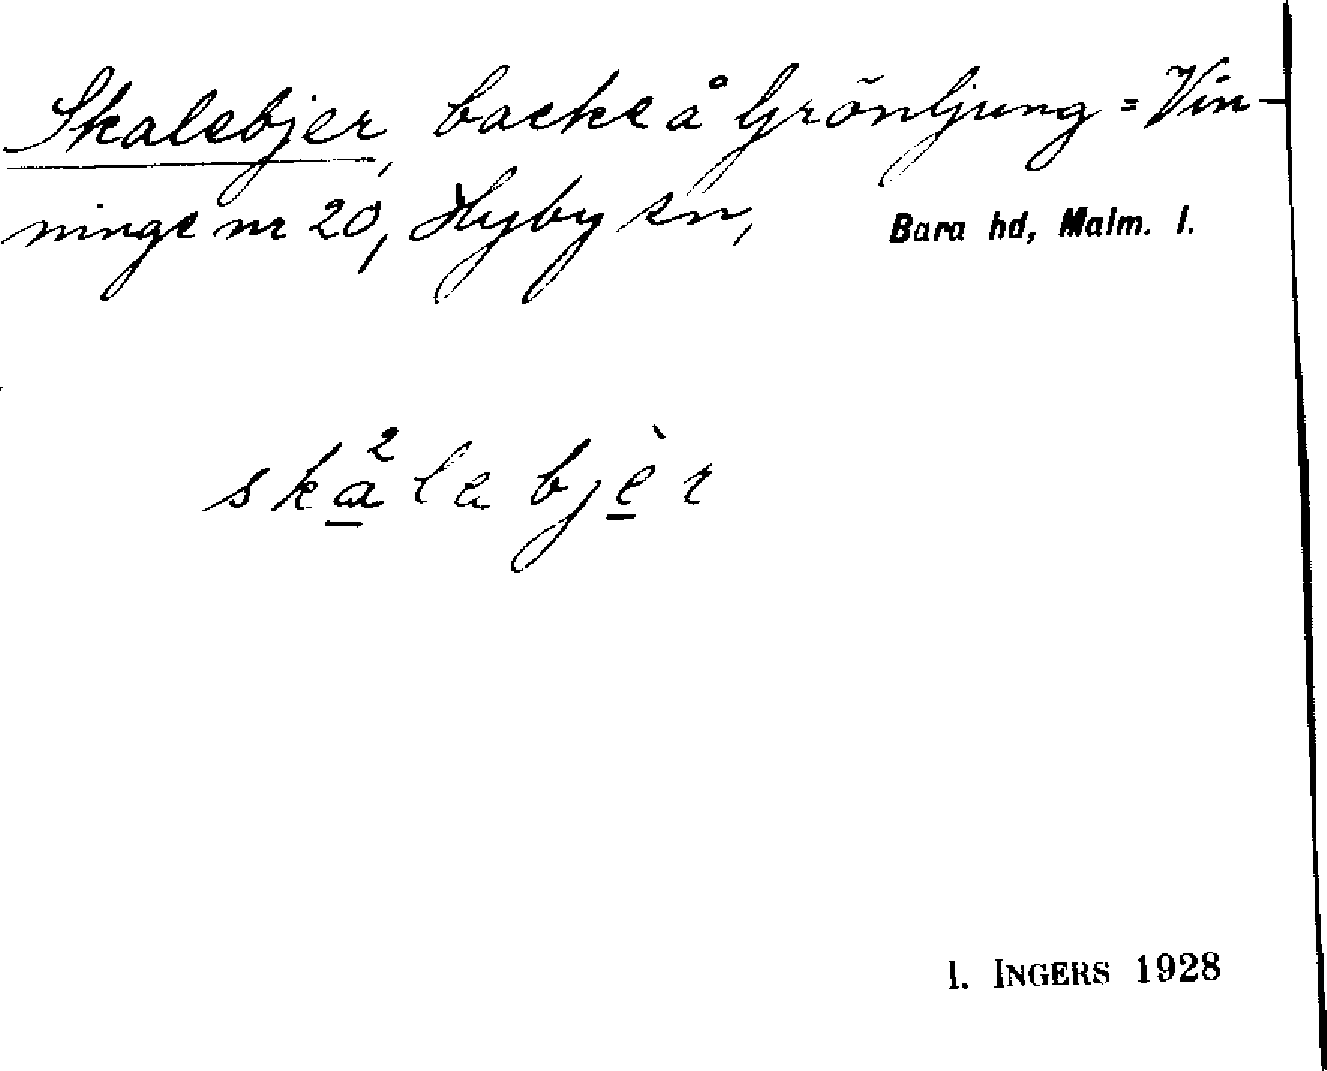 Skalebjer, backe å Grönljung = Vin-
ninge nr 20, Hyby sn, Bara hd, Malm. l.
ska²la bjèr
I. INGERS 1928